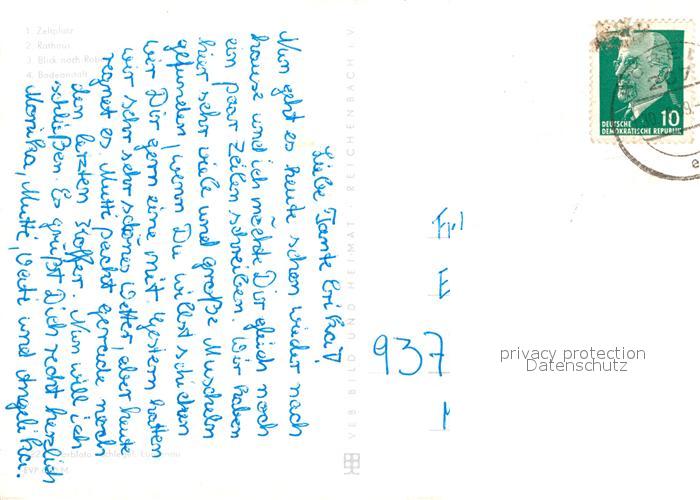 1. Zeltplatz
2. Rathaus
3. Blick nach
4. Badeanstalt
Liebe Tante Erika!
Nun geht es heute schon wieder nach
hause und ich möchte Dir gleich noch
ein paar Zeilen schreiben. Wir haben
hier sehr viele und große Muscheln
gefunden, wenn Du willst schicken
wir Dir gern eine mit. Gestern hatten
wir sehr sehr schönes Wetter, aber heute
regnet es. Mutti packt gerade noch
den letzten Koffer. Nun will ich
schließen. Es grüßt Dich recht herzlich
Monika, Mutti, Vati und Angelika.
VEB BILD UND HEIMAT · REICHENBACH i. V.
DEUTSCHE
DEMOKRATISCHE REPUBLIK
10
Frl
E
937
privacy protection
Datenschutz